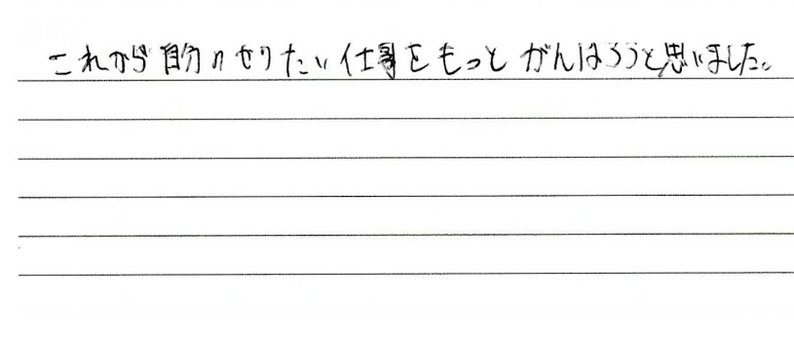 これから自分のやりたい仕事をもっとがんばろうと思いました。